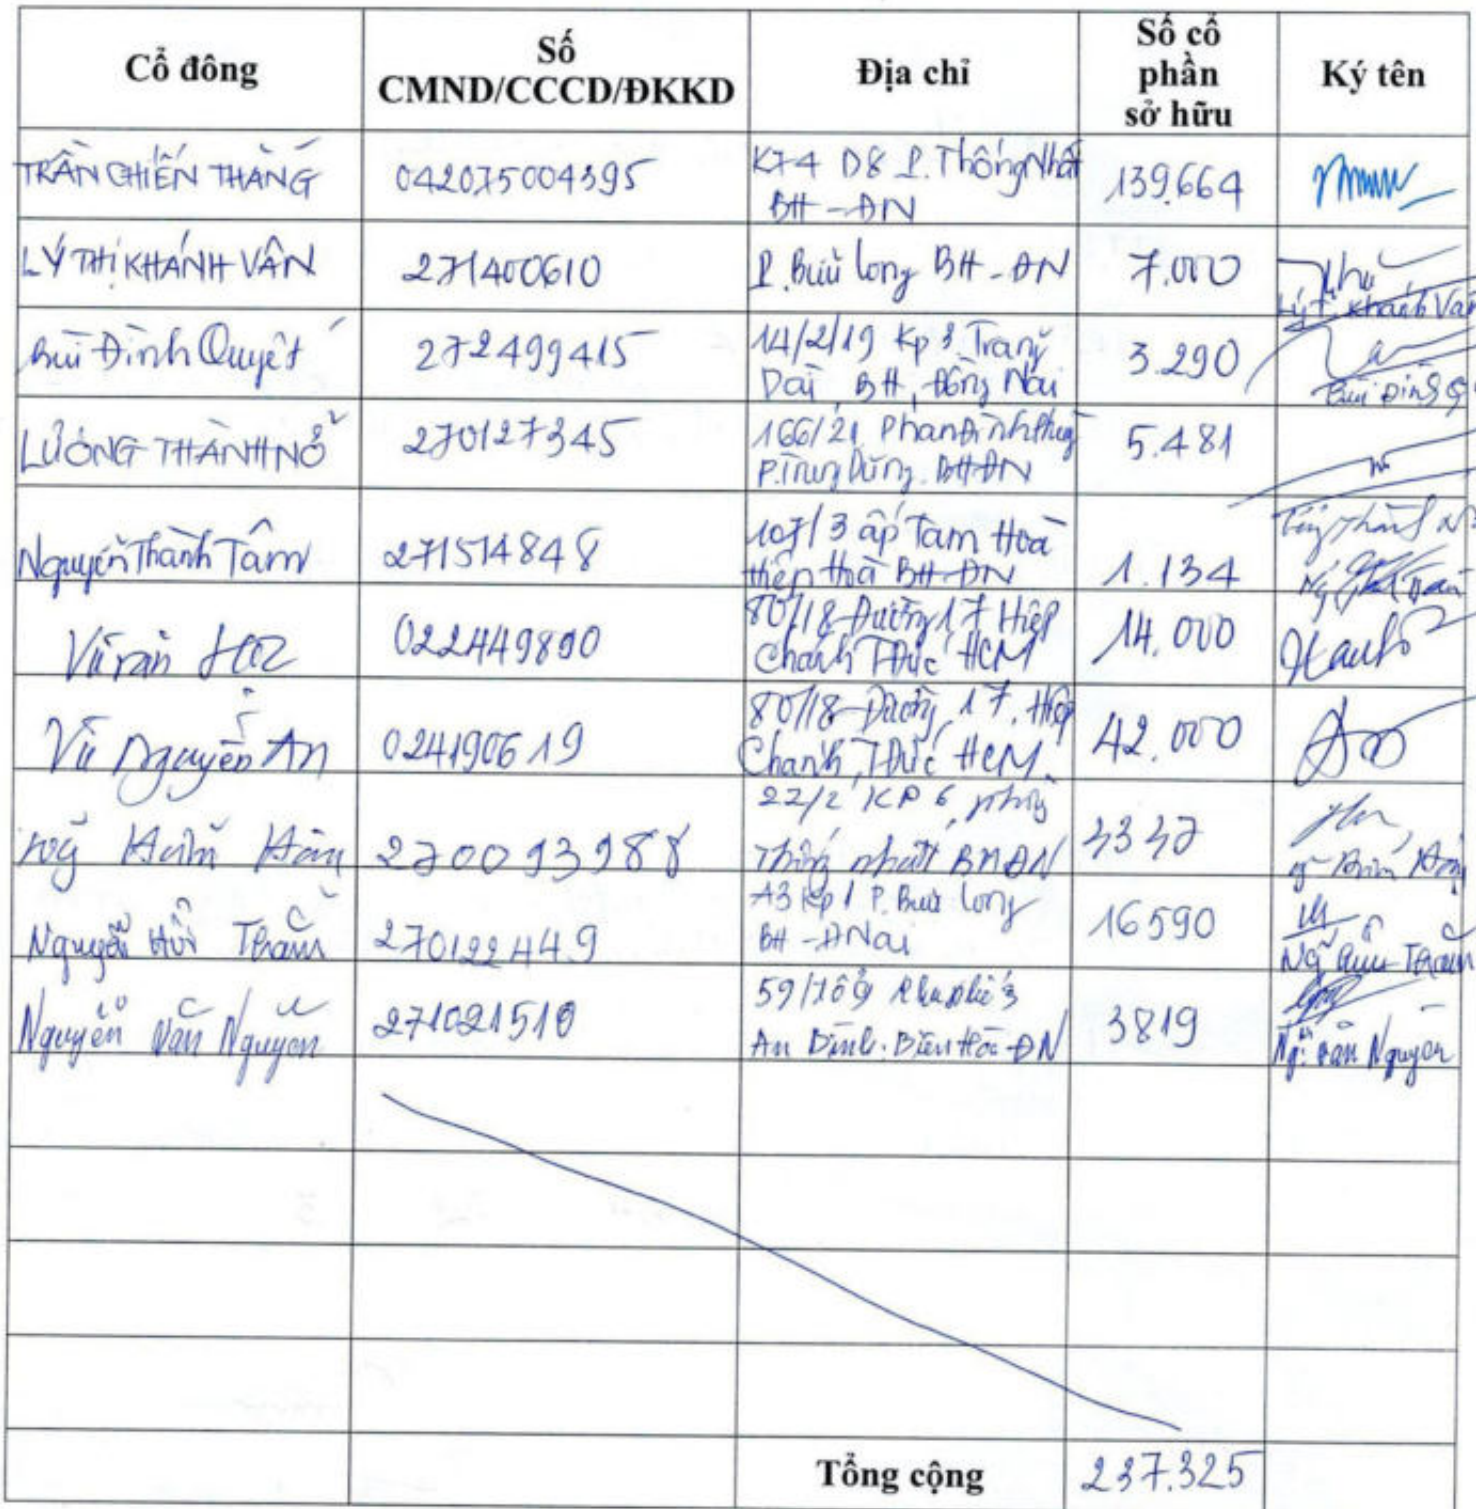 Cổ đông Số CMND/CCCD/ĐKKD Địa chỉ Số cổ phần sở hữu Ký tên
TRẦN CHIẾN THẮNG 042075004395 K74 D8 P. Thống Nhất BH - ĐN 139.664
LÝ THỊ KHÁNH VÂN 271400610 P. Bửu long BH - ĐN 7.000 Lý T. Khánh Vân
Bùi Đình Quyết 272499415 14/2/19 Kp 3 Trảng Dài, BH, Đồng Nai 3.290 Bùi Đình Q
LƯƠNG THÀNH NỞ 270127345 166/21 Phan Đình Phùng P. Trung Dũng. BH ĐN 5.481
Nguyễn Thành Tâm 271514848 107/3 ấp Tam Hoà Hiệp Hoà BH-ĐN 1.134
80/18 Đường 17 Hiệp Chánh TĐức HCM 14.000
Vũ Nguyễn An 024190619 80/18 Đường 17, Hiệp Chánh, TĐức HCM. 42.000
270093988 22/2 KP 6, phường Thống nhất BH ĐN 4347
Nguyễn Hữu 270122449 A3 Kp 1 P. Bửu Long BH - ĐNai 16590
Nguyễn Văn Nguyên 271021510 Khu phố 3 An Bình. Biên Hòa - ĐN 3819 Ng. Văn Nguyên
Tổng cộng 237.325